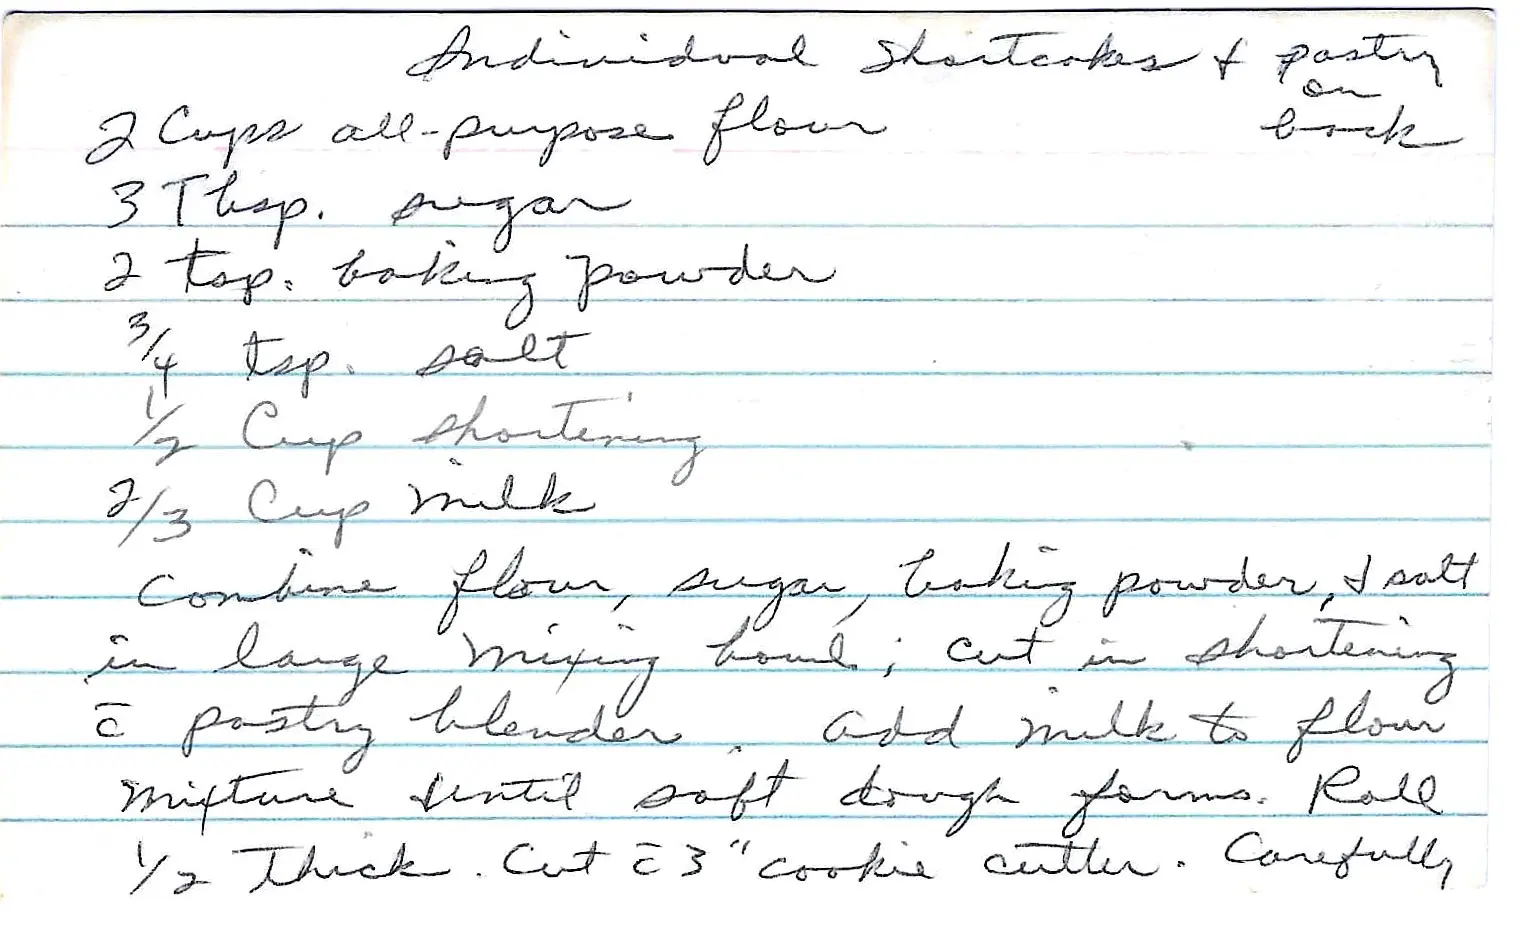 Individual Shortcakes & pastry
on
2 Cups all-purpose flour back
3 Tbsp. sugar
2 tsp. baking powder
3/4 tsp. salt
1/2 Cup shortening
2/3 Cup Milk
Combine flour, sugar, baking powder, & salt
in large mixing bowl; cut in shortening
c̄ pastry blender. Add milk to flour
mixture until soft dough forms. Roll
1/2 Thick. Cut c̄ 3" cookie cutter. Carefully